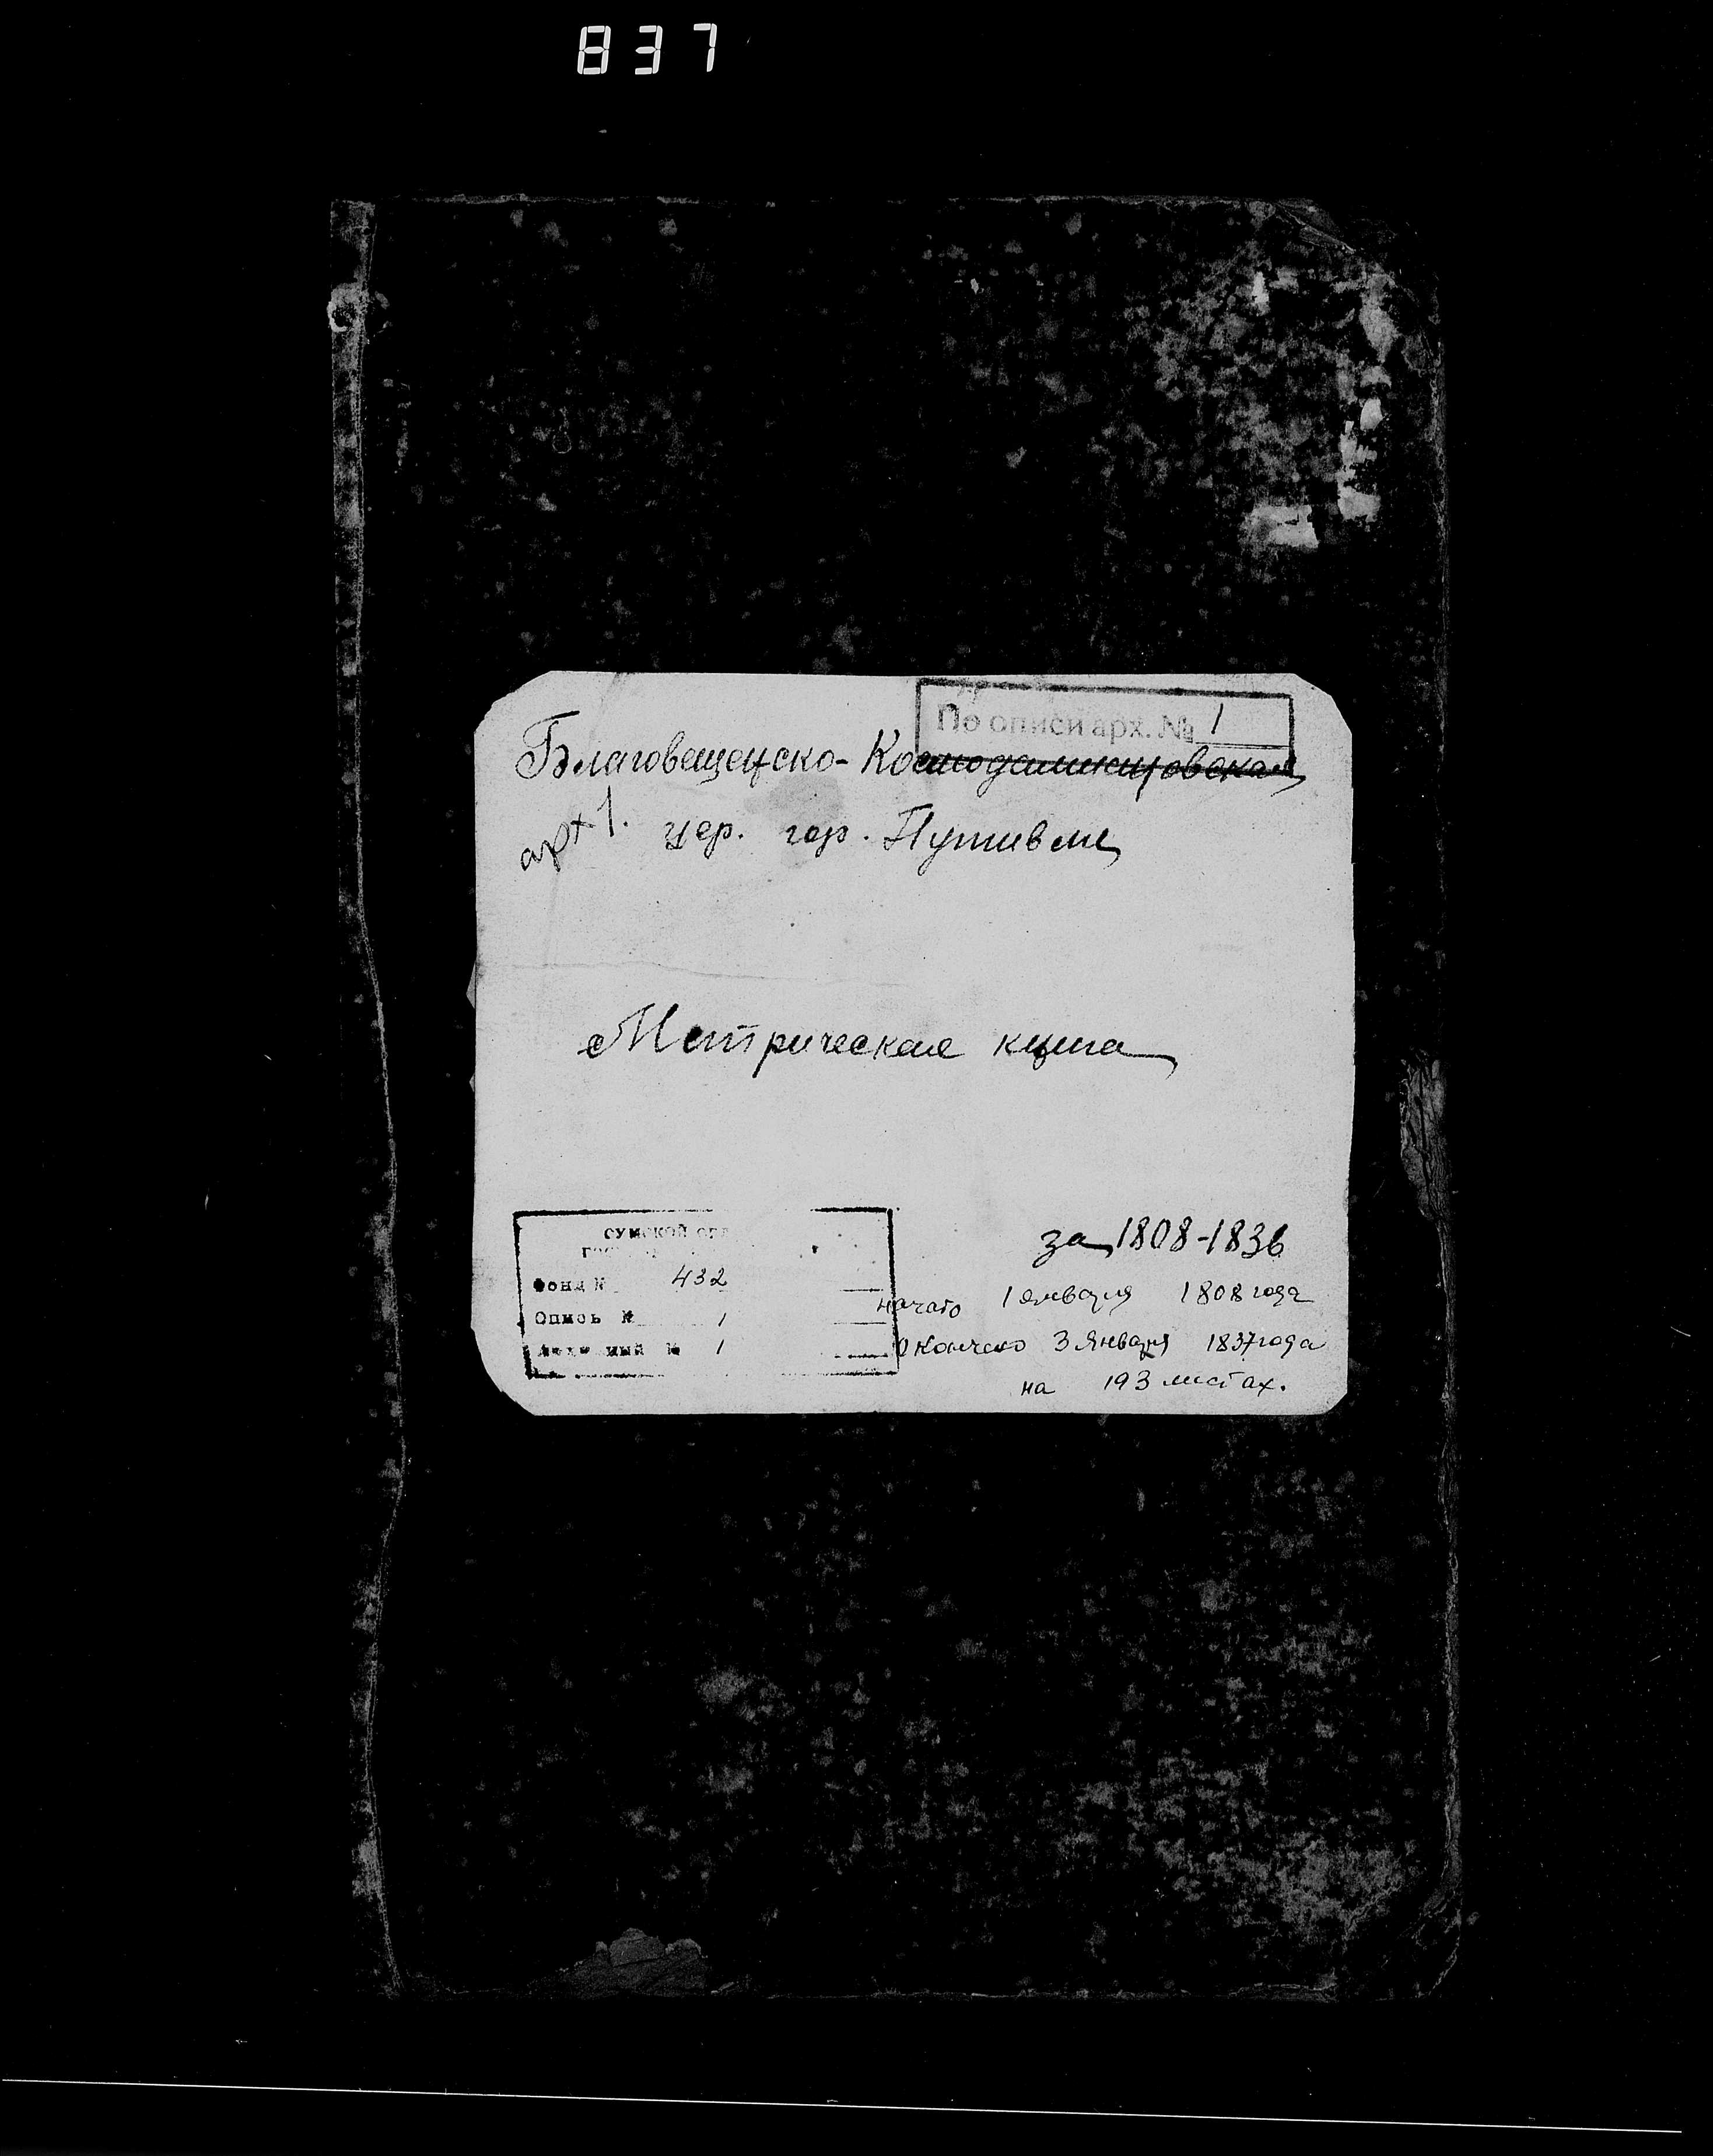 837
По описи арх. № 1
Благовещенско-Космодаминиовская
арх 1. цер. гор. Путивле
Метрическая книга
СУМСКОЙ
за 1808-1836
Фонд № 432
начато 1 января 1808 года
Опись № 1
Окончено 3 января 1837 года
№ 1
на 193 листах.